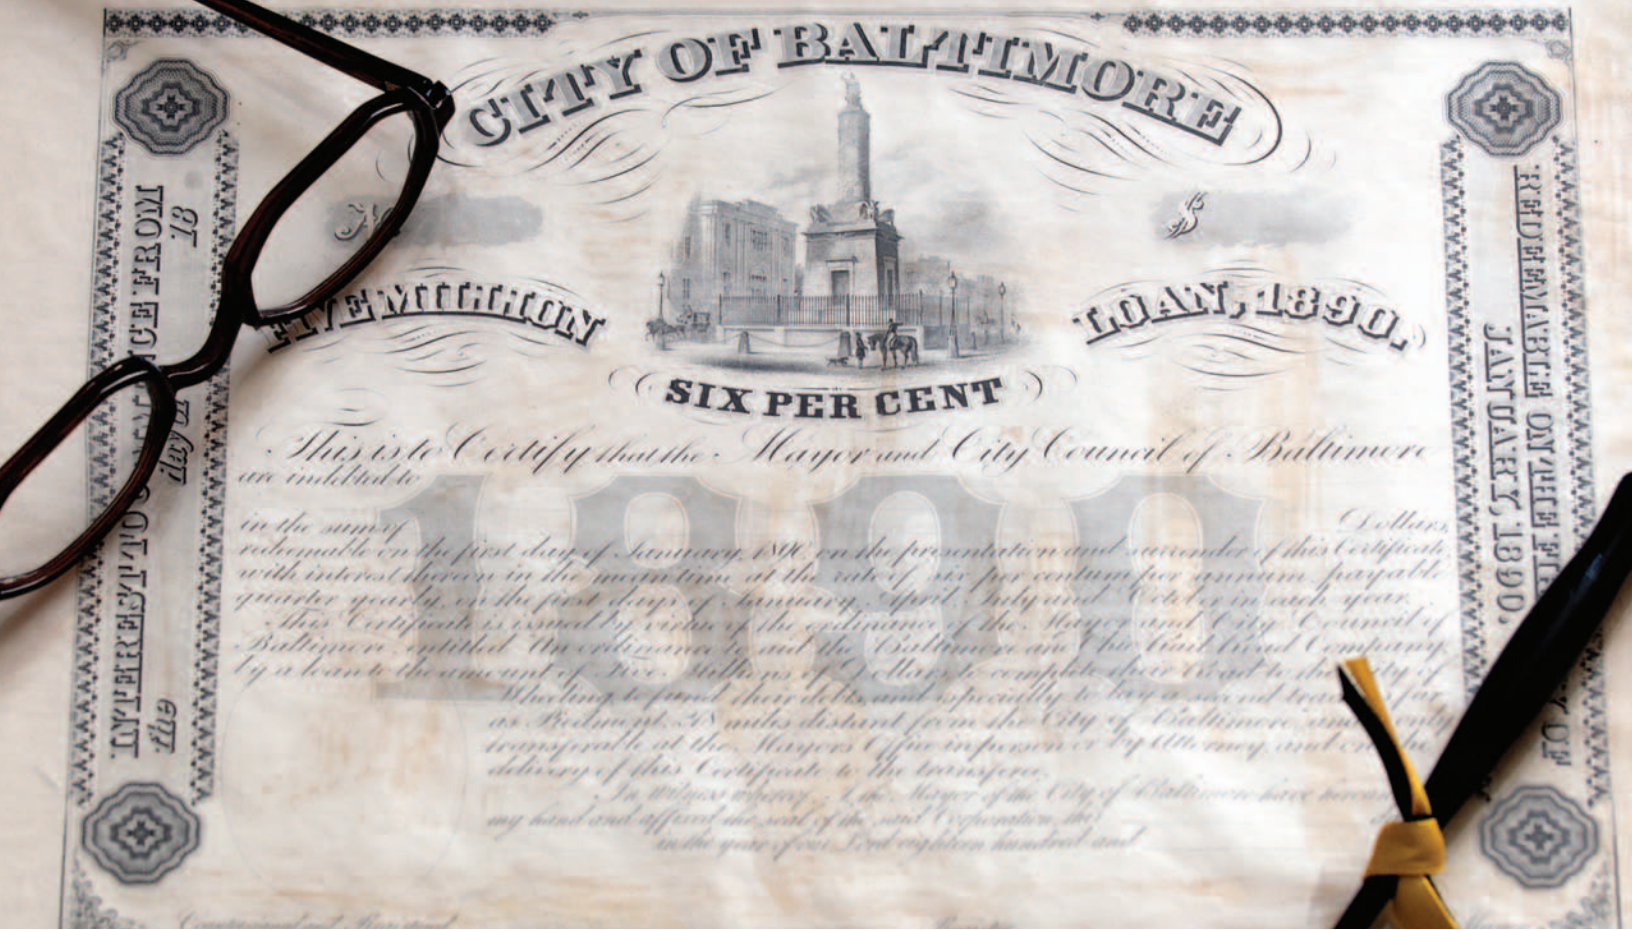 CITY OF BALTIMORE
No
$
FIVE MILLION
LOAN, 1890.
SIX PER CENT
1890
This is to Certify that the Mayor and City Council of Baltimore
are indebted to
in the sum of
Dollars,
redeemable on the first day of January, 1890, on the presentation and surrender of this Certificate
with interest thereon in the meantime at the rate of six per centum per annum payable
quarter yearly, on the first days of January, April, July and October in each year.
This Certificate is issued by virtue of the ordinance of the Mayor and City Council of
Baltimore, entitled An ordinance to aid the Baltimore and Ohio Rail Road Company
by a loan to the amount of Five Millions of Dollars to complete their road to the City of
Wheeling to fund their debt and especially to lay a second track so far
as Piedmont, 208 miles distant from the City of Baltimore and only
transferable at the Mayors Office in person or by Attorney, and on the
delivery of this Certificate to the transferee.
In Witness whereof, I the Mayor of the City of Baltimore have
my hand and affixed the seal of the said Corporation, this
in the year of our Lord eighteen hundred and
INTEREST TO FROM
the day of 18
REDEEMABLE ON THE OF
JANUARY, 1890.